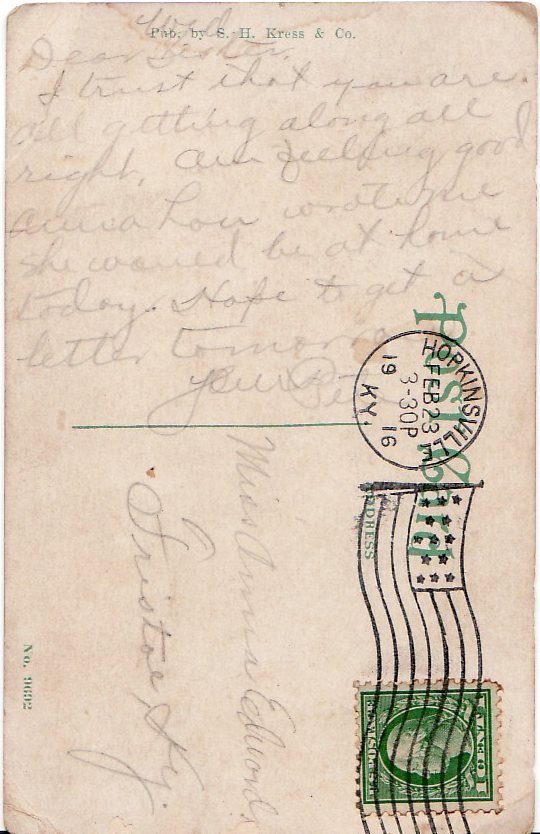 Wed
Pub. by S. H. Kress & Co.
Dear Sister,
I trust that you are
all getting along all
right. Am feeling good
Anna Lou wrote me
she would be at home
today. Hope to get a
letter tomorro
Post Card
ADDRESS
HOPKINSVILLE
FEB 23
3-30P
19 16
KY.
Miss Anna Edwards
Fristoe Ky.
No. 9692